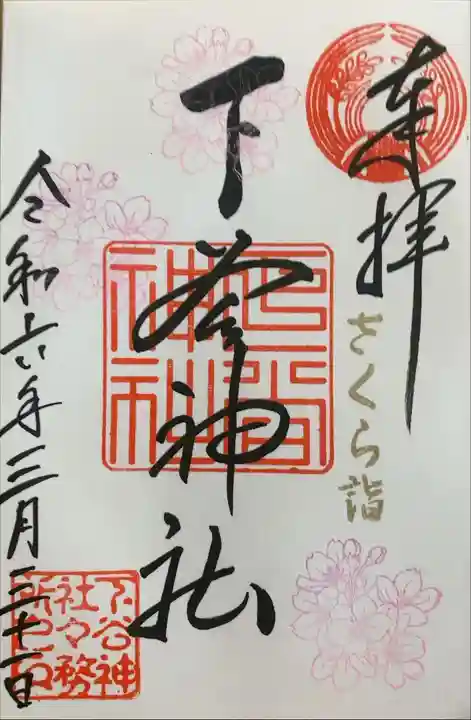 奉拝
さくら詣
下谷神社
下谷
神社
令和六年三月三十一日
下谷神
社々務
所之印